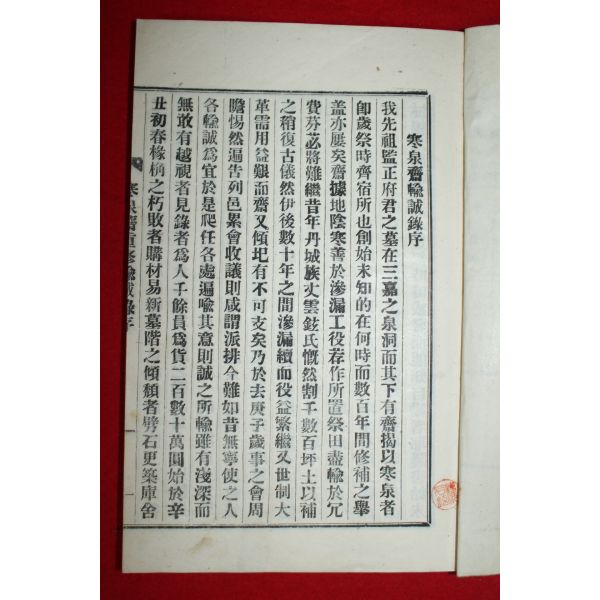 寒泉齋輸誠錄序
我先祖監正府君之墓在三嘉之泉洞而其下有齋揭以寒泉者
卽歲祭時齊宿所也創始未知的在何時而數百年間修補之舉
盖亦屢矣齋據地陰寒善於滲漏工役荐作所置祭田盡輸於冗
費芬苾將難繼昔年丹城族丈雲鉉氏慨然割千數百坪土以補
之稍復古儀然伊後數十年之間滲漏續而役益繁繼又世制大
革需用益艱而齋又傾圮有不可支矣乃於去庚子歲事之會周
瞻惕然遍告列邑累會收議則咸謂派排今難如昔無寧使之人
各輸誠爲宜於是爬任各處遍喩其意則誠之所輸雖有淺深而
無敢有越視者見錄者爲人千餘員爲貨二百數十萬圓始於辛
丑初春椽桷之朽敗者購材易新墓階之傾頹者劈石更築庫舍
寒泉齋重修輸誠錄序